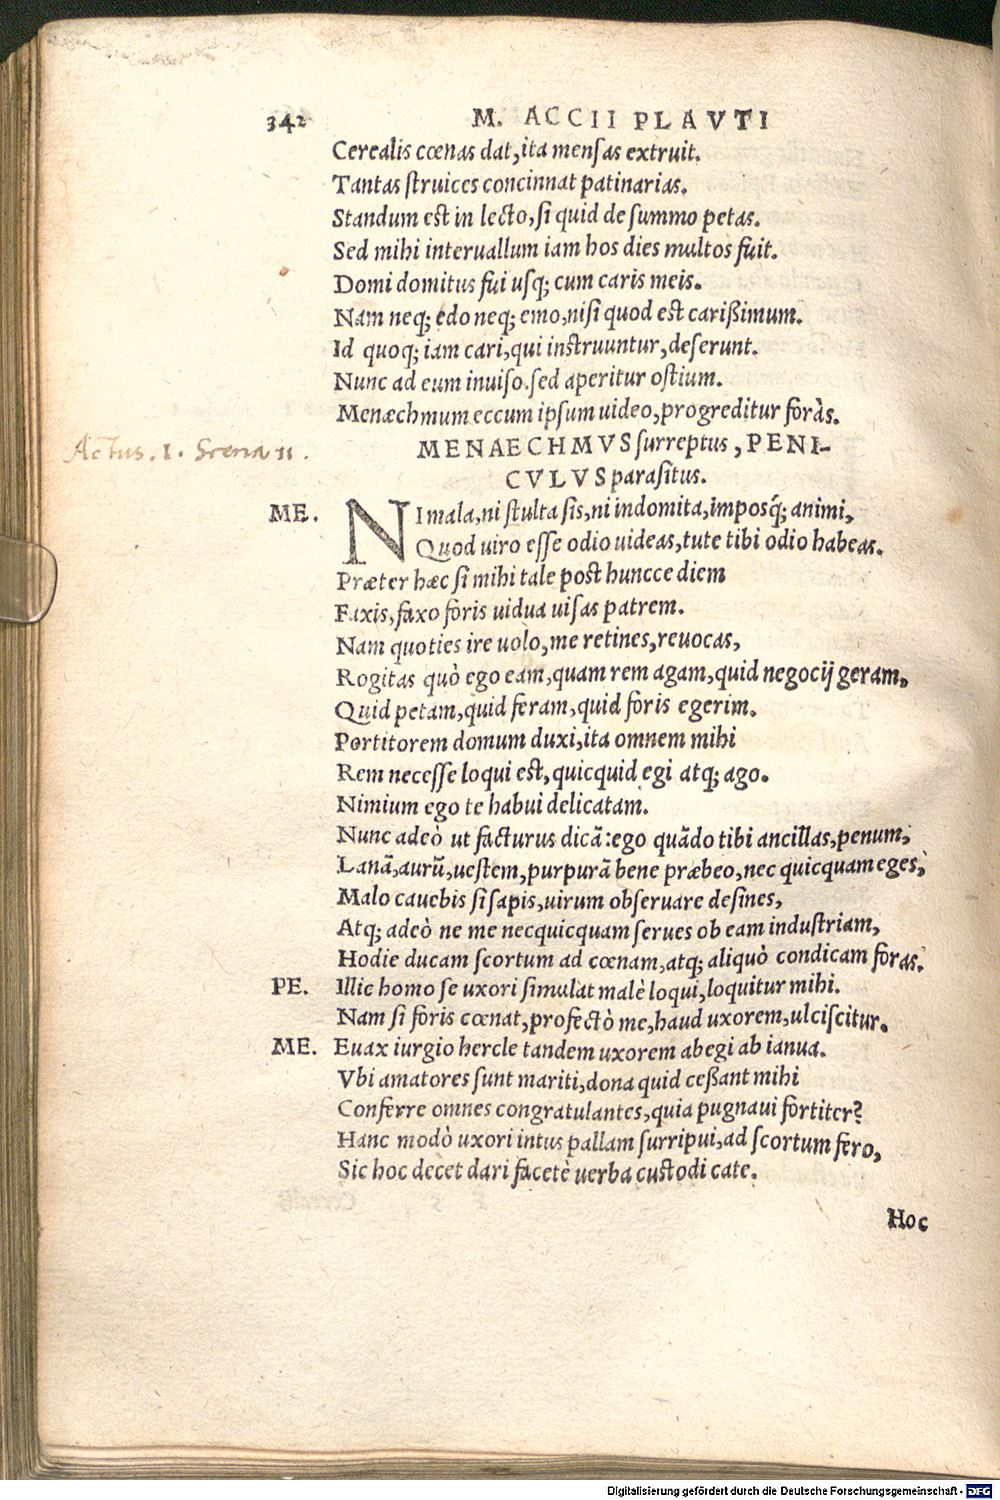 342 M. ACCII PLAVTI
Cerealis cœnas dat, ita mensas extruit.
Tantas struices concinnat patinarias.
Standum est in lecto, si quid de summo petas.
Sed mihi interuallum iam hos dies multos fuit.
Domi domitus fui usq; cum caris meis.
Nam neq; edo neq; emo, nisi quod est carißimum.
Id quoq; iam cari, qui instruuntur, deserunt.
Nunc ad eum inuiso. sed aperitur ostium.
Menæchmum eccum ipsum uideo, progreditur foràs.
Actus. I. Scena II.
MENAECHMVS surreptus, PENI-
CVLVS parasitus.
ME. NI mala, ni stulta sis, ni indomita, imposq́; animi,
Quod uiro esse odio uideas, tute tibi odio habeas.
Præter hæc si mihi tale post huncce diem
Faxis, faxo foris uidua uisas patrem.
Nam quoties ire uolo, me retines, reuocas,
Rogitas quò ego eam, quam rem agam, quid negocij geram,
Quid petam, quid feram, quid foris egerim.
Portitorem domum duxi, ita omnem mihi
Rem necesse loqui est, quicquid egi atq; ago.
Nimium ego te habui delicatam.
Nunc adeò ut facturus dicã: ego quãdo tibi ancillas, penum,
Lanã, aurũ, uestem, purpurã bene præbeo, nec quicquam eges,
Malo cauebis si sapis, uirum obseruare desines,
Atq; adeò ne me necquicquam serues ob eam industriam,
Hodie ducam scortum ad cœnam, atq; aliquò condicam foras.
PE. Illic homo se uxori simulat malè loqui, loquitur mihi.
Nam si foris cœnat, profectò me, haud uxorem, ulciscitur.
ME. Euax iurgio hercle tandem uxorem abegi ab ianua.
Vbi amatores sunt mariti, dona quid ceßant mihi
Conferre omnes congratulantes, quia pugnaui fortiter?
Hanc modò uxori intus pallam surripui, ad scortum fero,
Sic hoc decet dari facetè uerba custodi cate.
Hoc
Digitalisierung gefördert durch die Deutsche Forschungsgemeinschaft - DFG